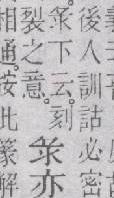 後人訓詁必密
下云。刻
裂之意。
亦
相通。按此篆解